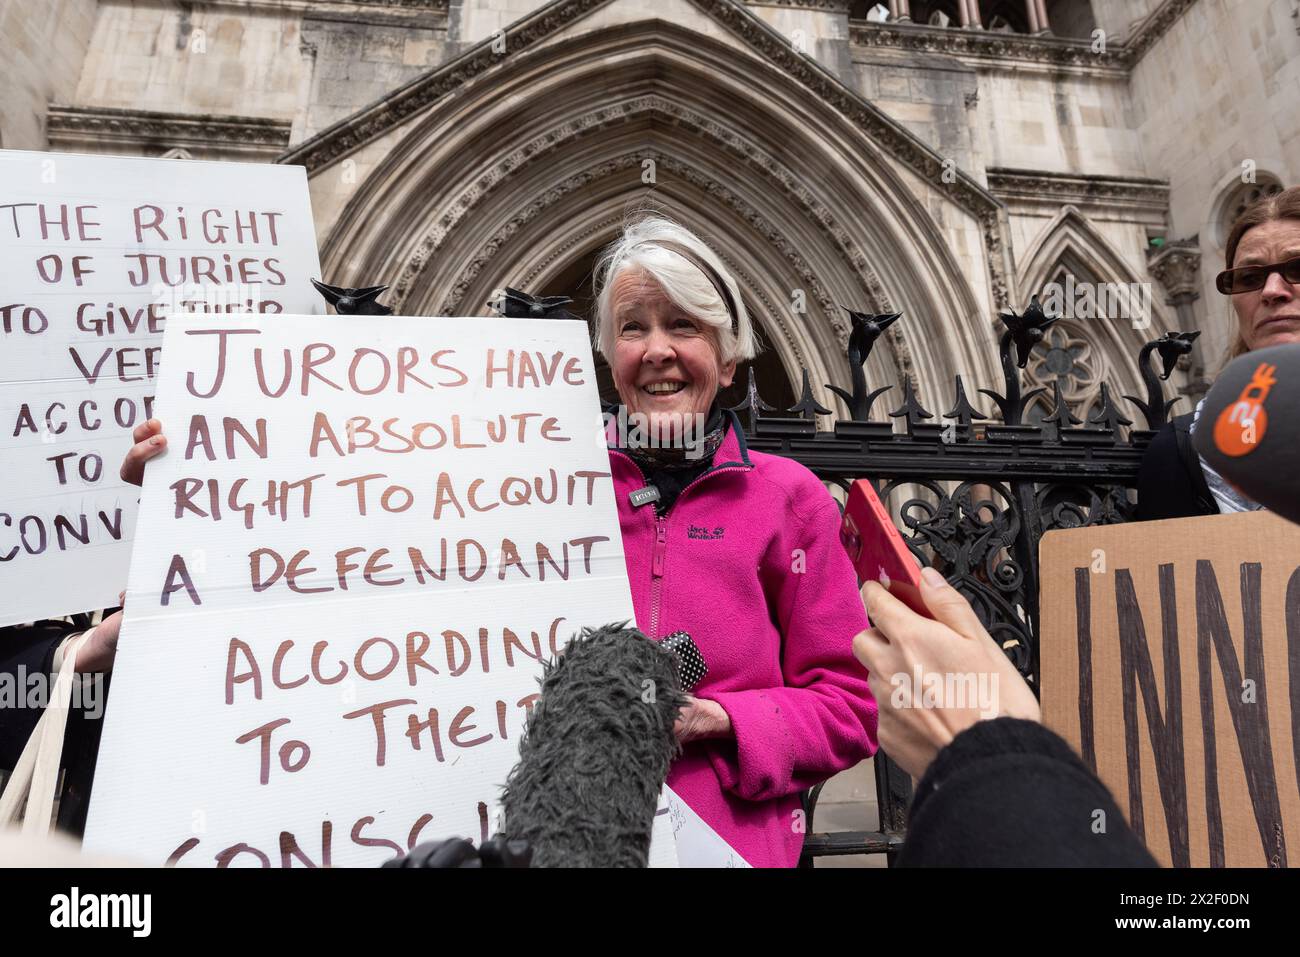 THE RiGHT
OF JURiES
TO GiVE THEiR
VER
ACCOR
TO
CONV
JURORS HAVE
AN ABSOLUTE
RIGHT TO ACQUIT
A DEFENDANT
ACCORDING
TO THEIR
CONSC
Jack
Wolfskin
ZDF
INN
alamy
Image ID: 2X2F0DN
www.alamy.com